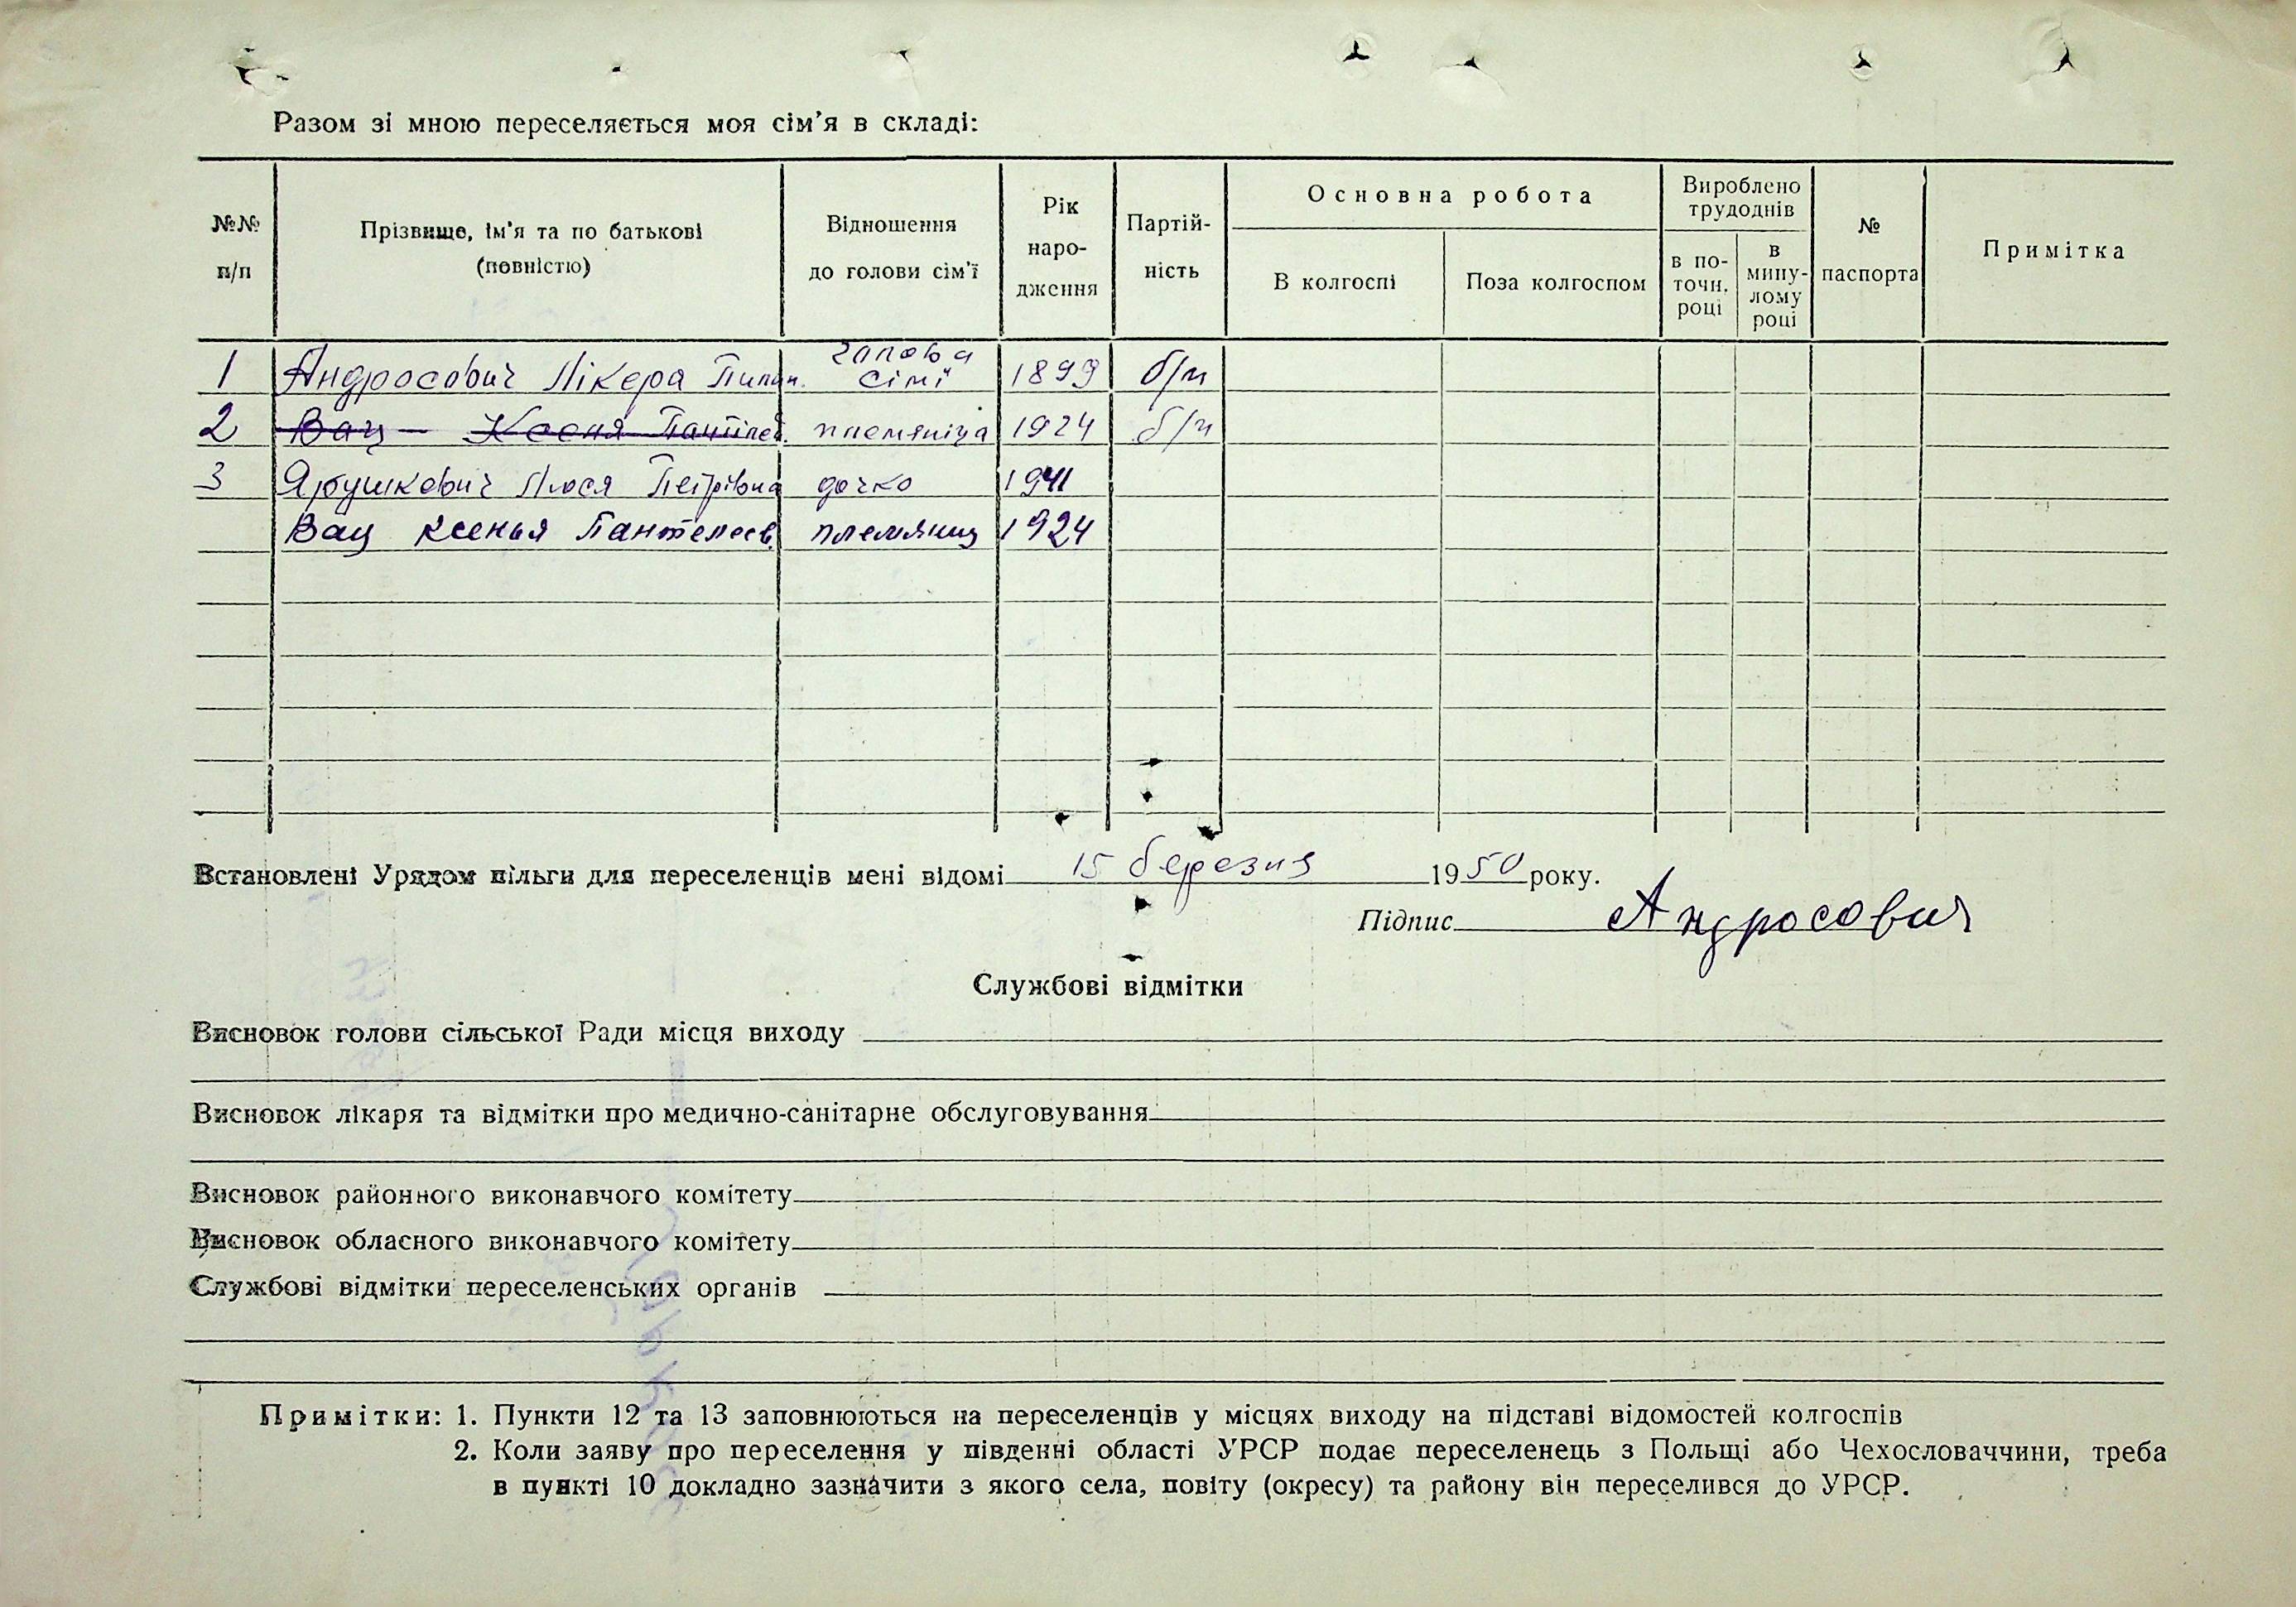 Разом зі мною переселяється моя сім'я в складі:
№№ п/п
Прізвище, ім'я та по батькові (повністю)
Відношення до голови сім'ї
Рік народження
Партійність
Основна робота
В колгоспі
Поза колгоспом
Вироблено трудоднів
в поточн. році
в минулому році
№ паспорта
Примітка
1 Андросович Лікера Пилип. голова сімї 1899 б/п
2 Вац Ксеня Пантілей. племяніца 1924 б/п
3 Ярушкевич Люся Петрівна дочка 1941
Вац Ксенья Пантелеев. племяниц 1924
Встановлені Урядом пільги для переселенців мені відомі 15 березня 1950 року.
Підпис Андросович
Службові відмітки
Висновок голови сільської Ради місця виходу
Висновок лікаря та відмітки про медично-санітарне обслуговування
Висновок районного виконавчого комітету
Висновок обласного виконавчого комітету
Службові відмітки переселенських органів
Примітки: 1. Пункти 12 та 13 заповнюються на переселенців у місцях виходу на підставі відомостей колгоспів
2. Коли заяву про переселення у південні області УРСР подає переселенець з Польщі або Чехословаччини, треба
в пункті 10 докладно зазначити з якого села, повіту (окресу) та району він переселився до УРСР.